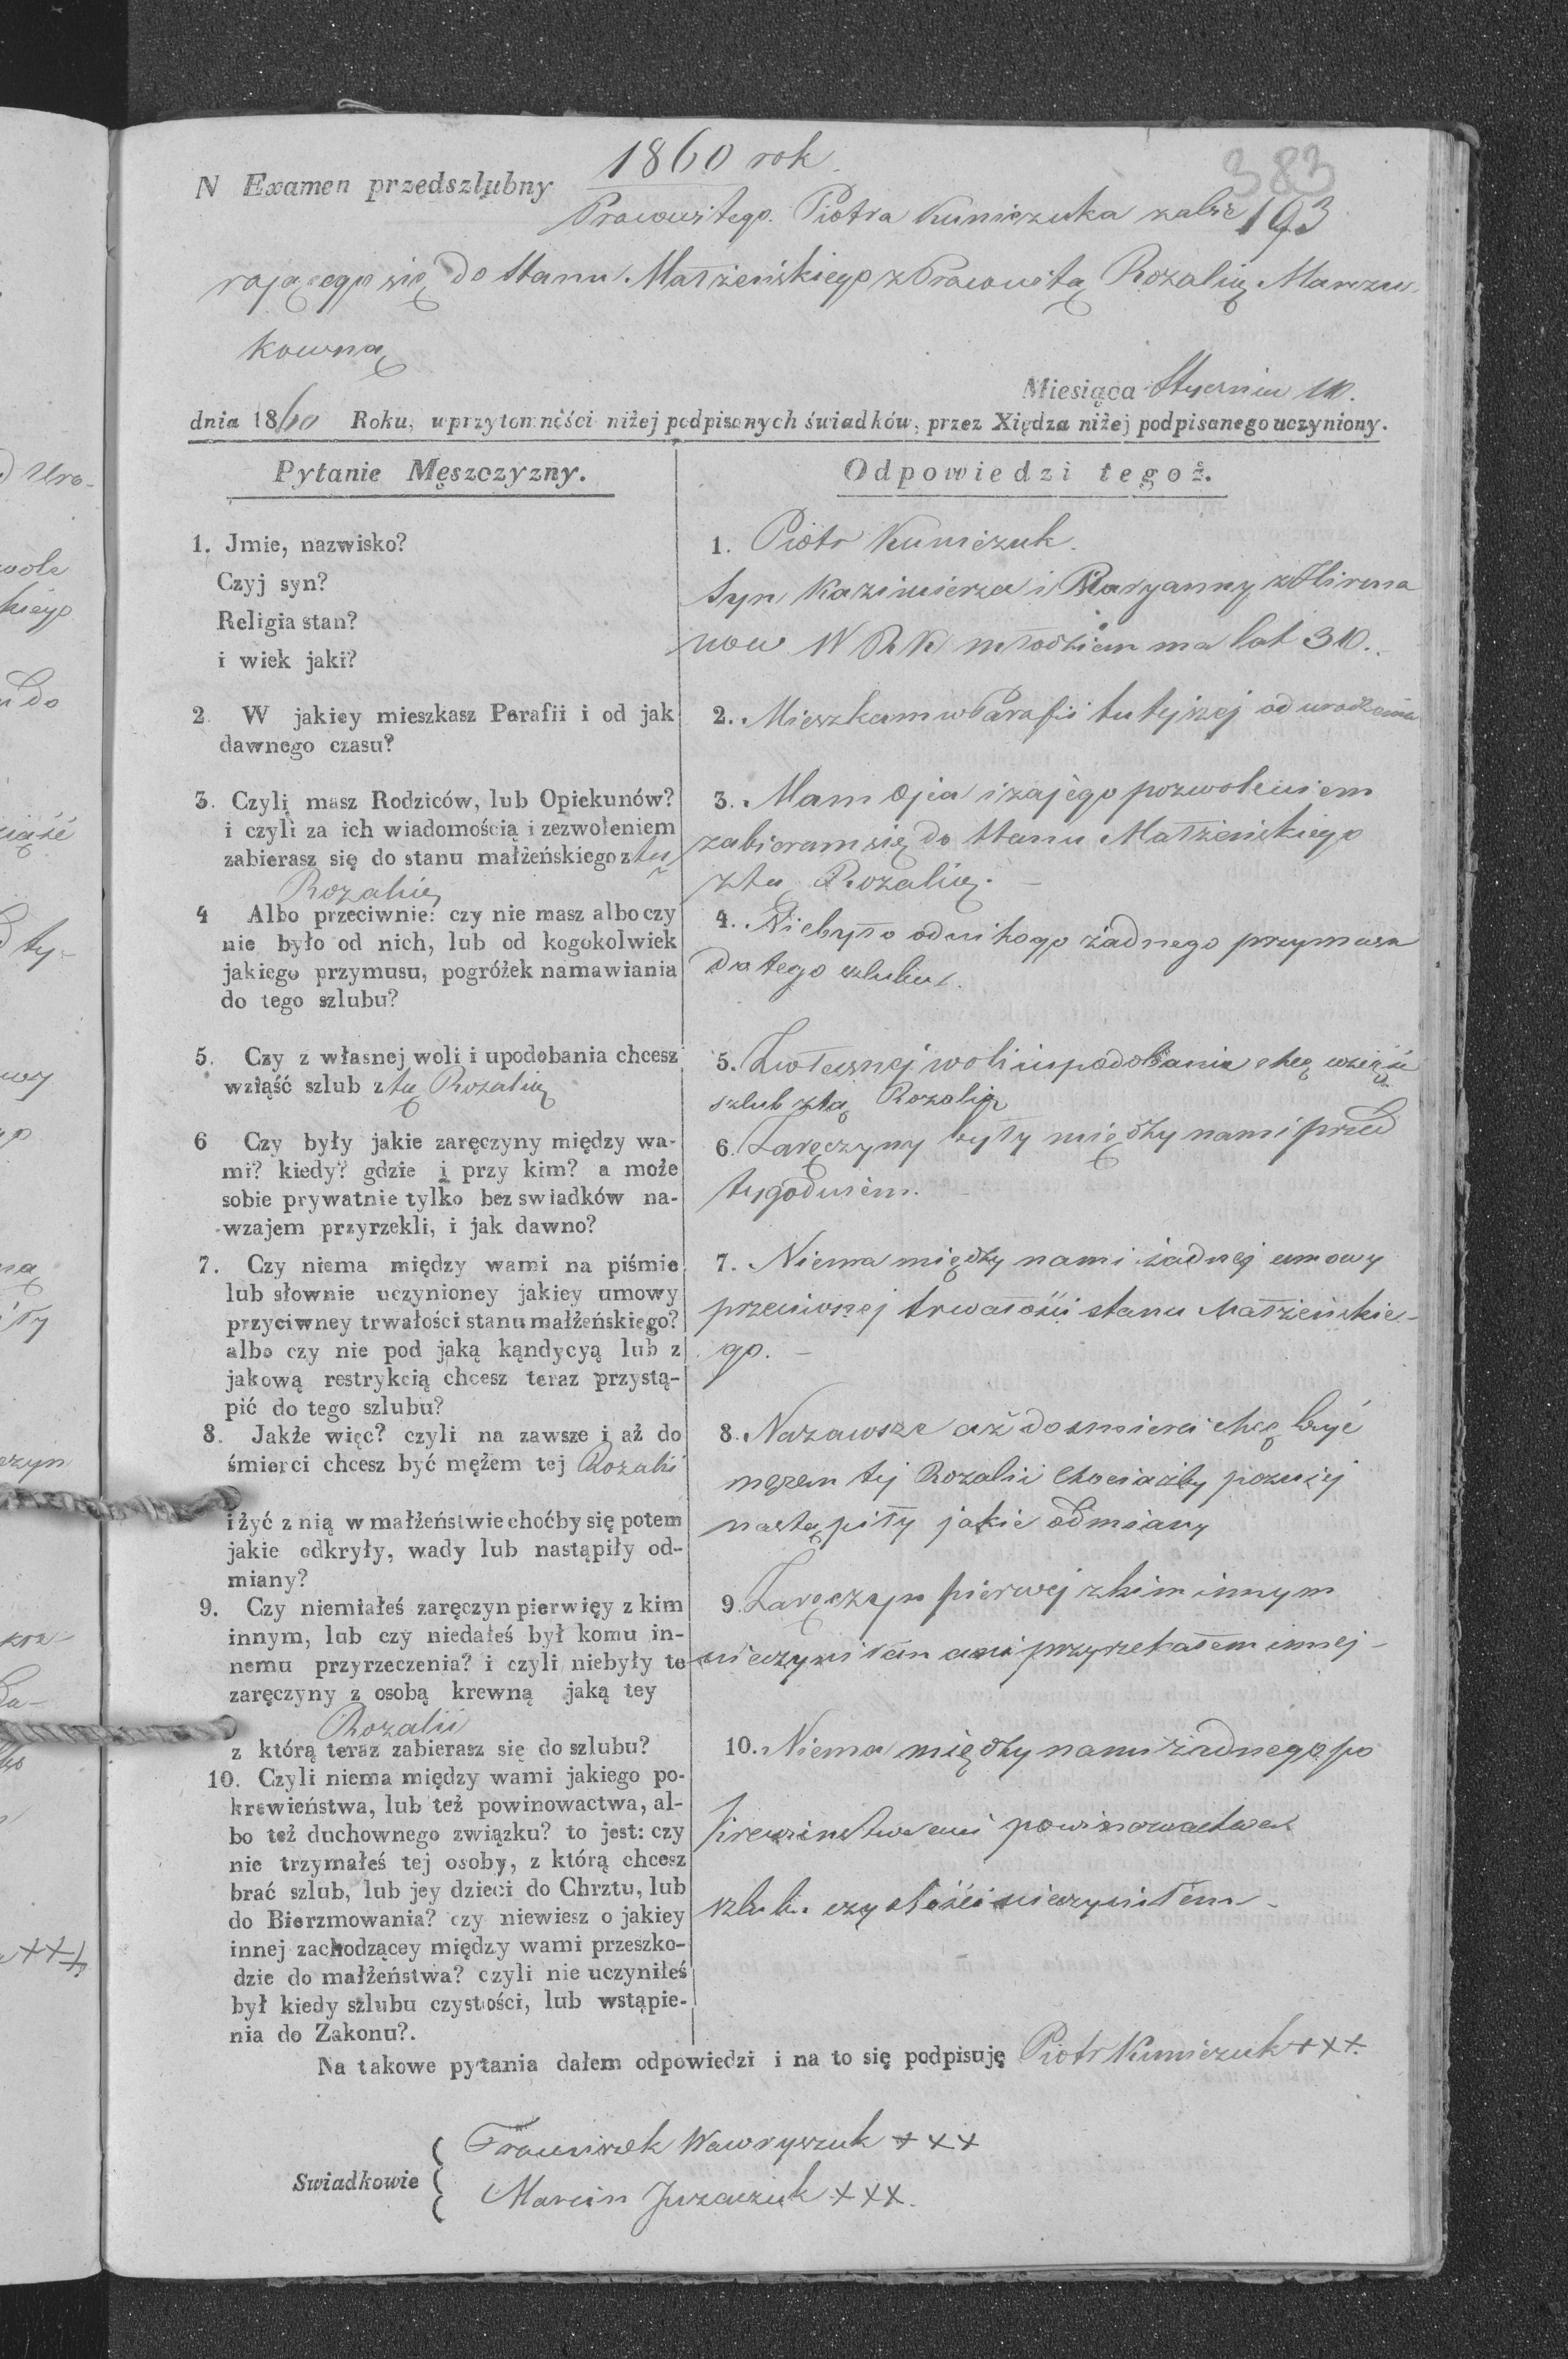 1860 rok
383
N Examen przedszlubny
Pracowitego Piotra Kuniczuka zabie
193
rającego się do stanu Małżeńskiego z Pracowitą Rozalią Marczu-
kowną
Miesiąca Stycznia 10.
dnia 1860 Roku, w przytomności niżej podpisanych świadków, przez Xiędza niżej podpisanego uczyniony.
Pytanie Męszczyzny.
Odpowiedzi tegoż.
1. Jmie, nazwisko?
Czyj syn?
Religia stan?
i wiek jaki?
1. Piotr Kuniczuk.
Syn Kazimierza i Maryanny z
now W R K młodzian ma lat 30.
2. W jakiey mieszkasz Parafii i od jak
dawnego czasu?
2. Mieszkam w Parafii tutejszej od urodzenia
3. Czyli masz Rodziców, lub Opiekunów?
i czyli za ich wiadomością i zezwoleniem
zabierasz się do stanu małżeńskiego z tą
Rozalią
3. Mam Ojca i za jego pozwoleniem
zabieram się do stanu Małżeńskiego
z tą Rozalią. —
4 Albo przeciwnie: czy nie masz albo czy
nie było od nich, lub od kogokolwiek
jakiego przymusu, pogróżek namawiania
do tego szlubu?
4. Niebyło od nikogo żadnego przymusu
do tego szlubu.
5. Czy z własnej woli i upodobania chcesz
wziąść szlub z tą Rozalią
5. Z własnej woli i upodobania chcę wziąść
szlub z tą Rozalią
6 Czy były jakie zaręczyny między wa-
mi? kiedy? gdzie i przy kim? a może
sobie prywatnie tylko bez swiadków na-
wzajem przyrzekli, i jak dawno?
6. Zaręczyny były między nami przed
tygodniem.
7. Czy niema między wami na piśmie
lub słownie uczynioney jakiey umowy
przyciwney trwałości stanu małżeńskiego?
albo czy nie pod jaką kąndycyą lub z
jakową restrykcią chcesz teraz przystą-
pić do tego szlubu?
7. Niema między nami żadnej umowy
przeciwnej trwałości stanu Małżeńskie-
go. —
8. Jakże więc? czyli na zawsze i aż do
śmierci chcesz być mężem tej Rozalii
i żyć z nią w małżeństwie choćby się potem
jakie odkryły, wady lub nastąpiły od-
miany?
8. Nazawsze aż do smierci chcę być
mężem tej Rozalii chociażby pozniej
nastąpiły jakie odmiany
9. Czy niemiałeś zaręczyn pierwięy z kim
innym, lub czy niedałeś był komu in-
nemu przyrzeczenia? i czyli niebyły te
zaręczyny z osobą krewną jaką tey
Rozalii
z którą teraz zabierasz się do szlubu?
9. Zaręczyn pierwej z kim innym
nieczyniłem ani przyrzekałem innej —
10. Czyli niema między wami jakiego po-
krewieństwa, lub też powinowactwa, al-
bo też duchownego związku? to jest: czy
nie trzymałeś tej osoby, z którą chcesz
brać szlub, lub jey dzieci do Chrztu, lub
do Bierzmowania? czy niewiesz o jakiey
innej zachodzącey między wami przeszko-
dzie do małżeństwa? czyli nie uczyniłeś
był kiedy szlubu czystości, lub wstąpie-
nia do Zakonu?.
10. Niema między nami żadnego po
krewinstwa ani powinowactwa
szlubu czystości nieczyniłem —
Na takowe pytania dałem odpowiedzi i na to się podpisuję Piotr Kuniczuk +++.
Swiadkowie
Franciszek Wawryszuk +++
Marcin +++.